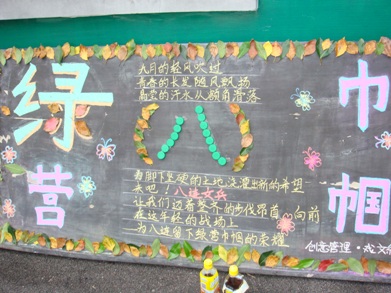 绿营
巾帼
八
九月的轻风吹过
青春的长发随风飘扬
高莹的汗水从额角滑落
着脚下坚硬的土地 浇灌出新的希望
来吧！八连女兵
让我们迈着整齐的步伐昂首 向前
在这年轻的战场上
为八连留下绿营巾帼的荣耀
创意管理